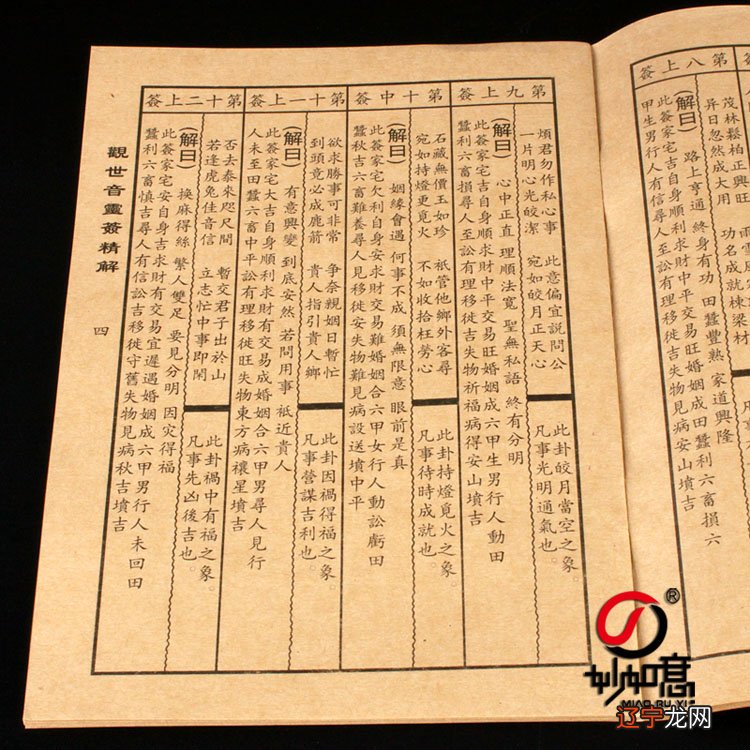 第八上簽
茂林鬆柏正興旺
異日忽然成大用 功名成就棟梁材
(解曰) 路上亨通 終身有功 田蠶豐熟 家道興隆
第九上簽
煩君勿作私心事 此意偏宜說問公
一片明心光皎潔 宛如皎月正天心
此卦皎月當空之象。
凡事光明通氣也。
(解曰) 心中正直 理順法寬 聖無私語 終有分明
此簽家宅吉自身順利求財中平交易旺婚姻成六甲生男行人動田
蠶利六畜損尋人至訟有理移徙吉失物祈福病得安山墳吉
第十中簽
石藏無價玉如珍 祇管他鄉外客尋
宛如持燈更覓火 不如收拾枉勞心
此卦持燈覓火之象。
凡事待時成就也。
(解曰) 姻緣會遇 何事不成 須無限意 眼前是真
此簽家宅欠利自身安求財交易難婚姻合六甲女行人動訟虧田
蠶秋吉六畜難養尋人見移徙安失物難見病設送墳中平
第十一上簽
欲求勝事可非常 爭奈親姻日暫忙
到頭竟必成鹿箭 貴人指引貴人鄉
此卦因禍得福之象。
凡事營謀吉利也。
(解曰) 有意興變 到底安然 若問用事 祇近貴人
此簽家宅大吉自身順利求財有交易成婚姻合六甲男尋人見行
人未至田蠶六畜中平訟有理移徙吉失物東方病禳星墳吉
第十二上簽
否去泰來咫尺間 暫交君子出於山
若逢虎兔佳音信 立志忙中事即閑
此卦禍中有福之象。
凡事先凶後吉也。
(解曰) 換麻得絲 繁人雙足 要見分明 因灾得福
此簽家宅安自身吉求財有交易宜遲遇婚姻成六甲男行人未回田
蠶利六畜慎吉尋人有信訟吉移徙守舊失物見病秋吉墳吉
觀世音靈簽精解
四
®
妙如意
MIAO RU YI
辽宁龙网